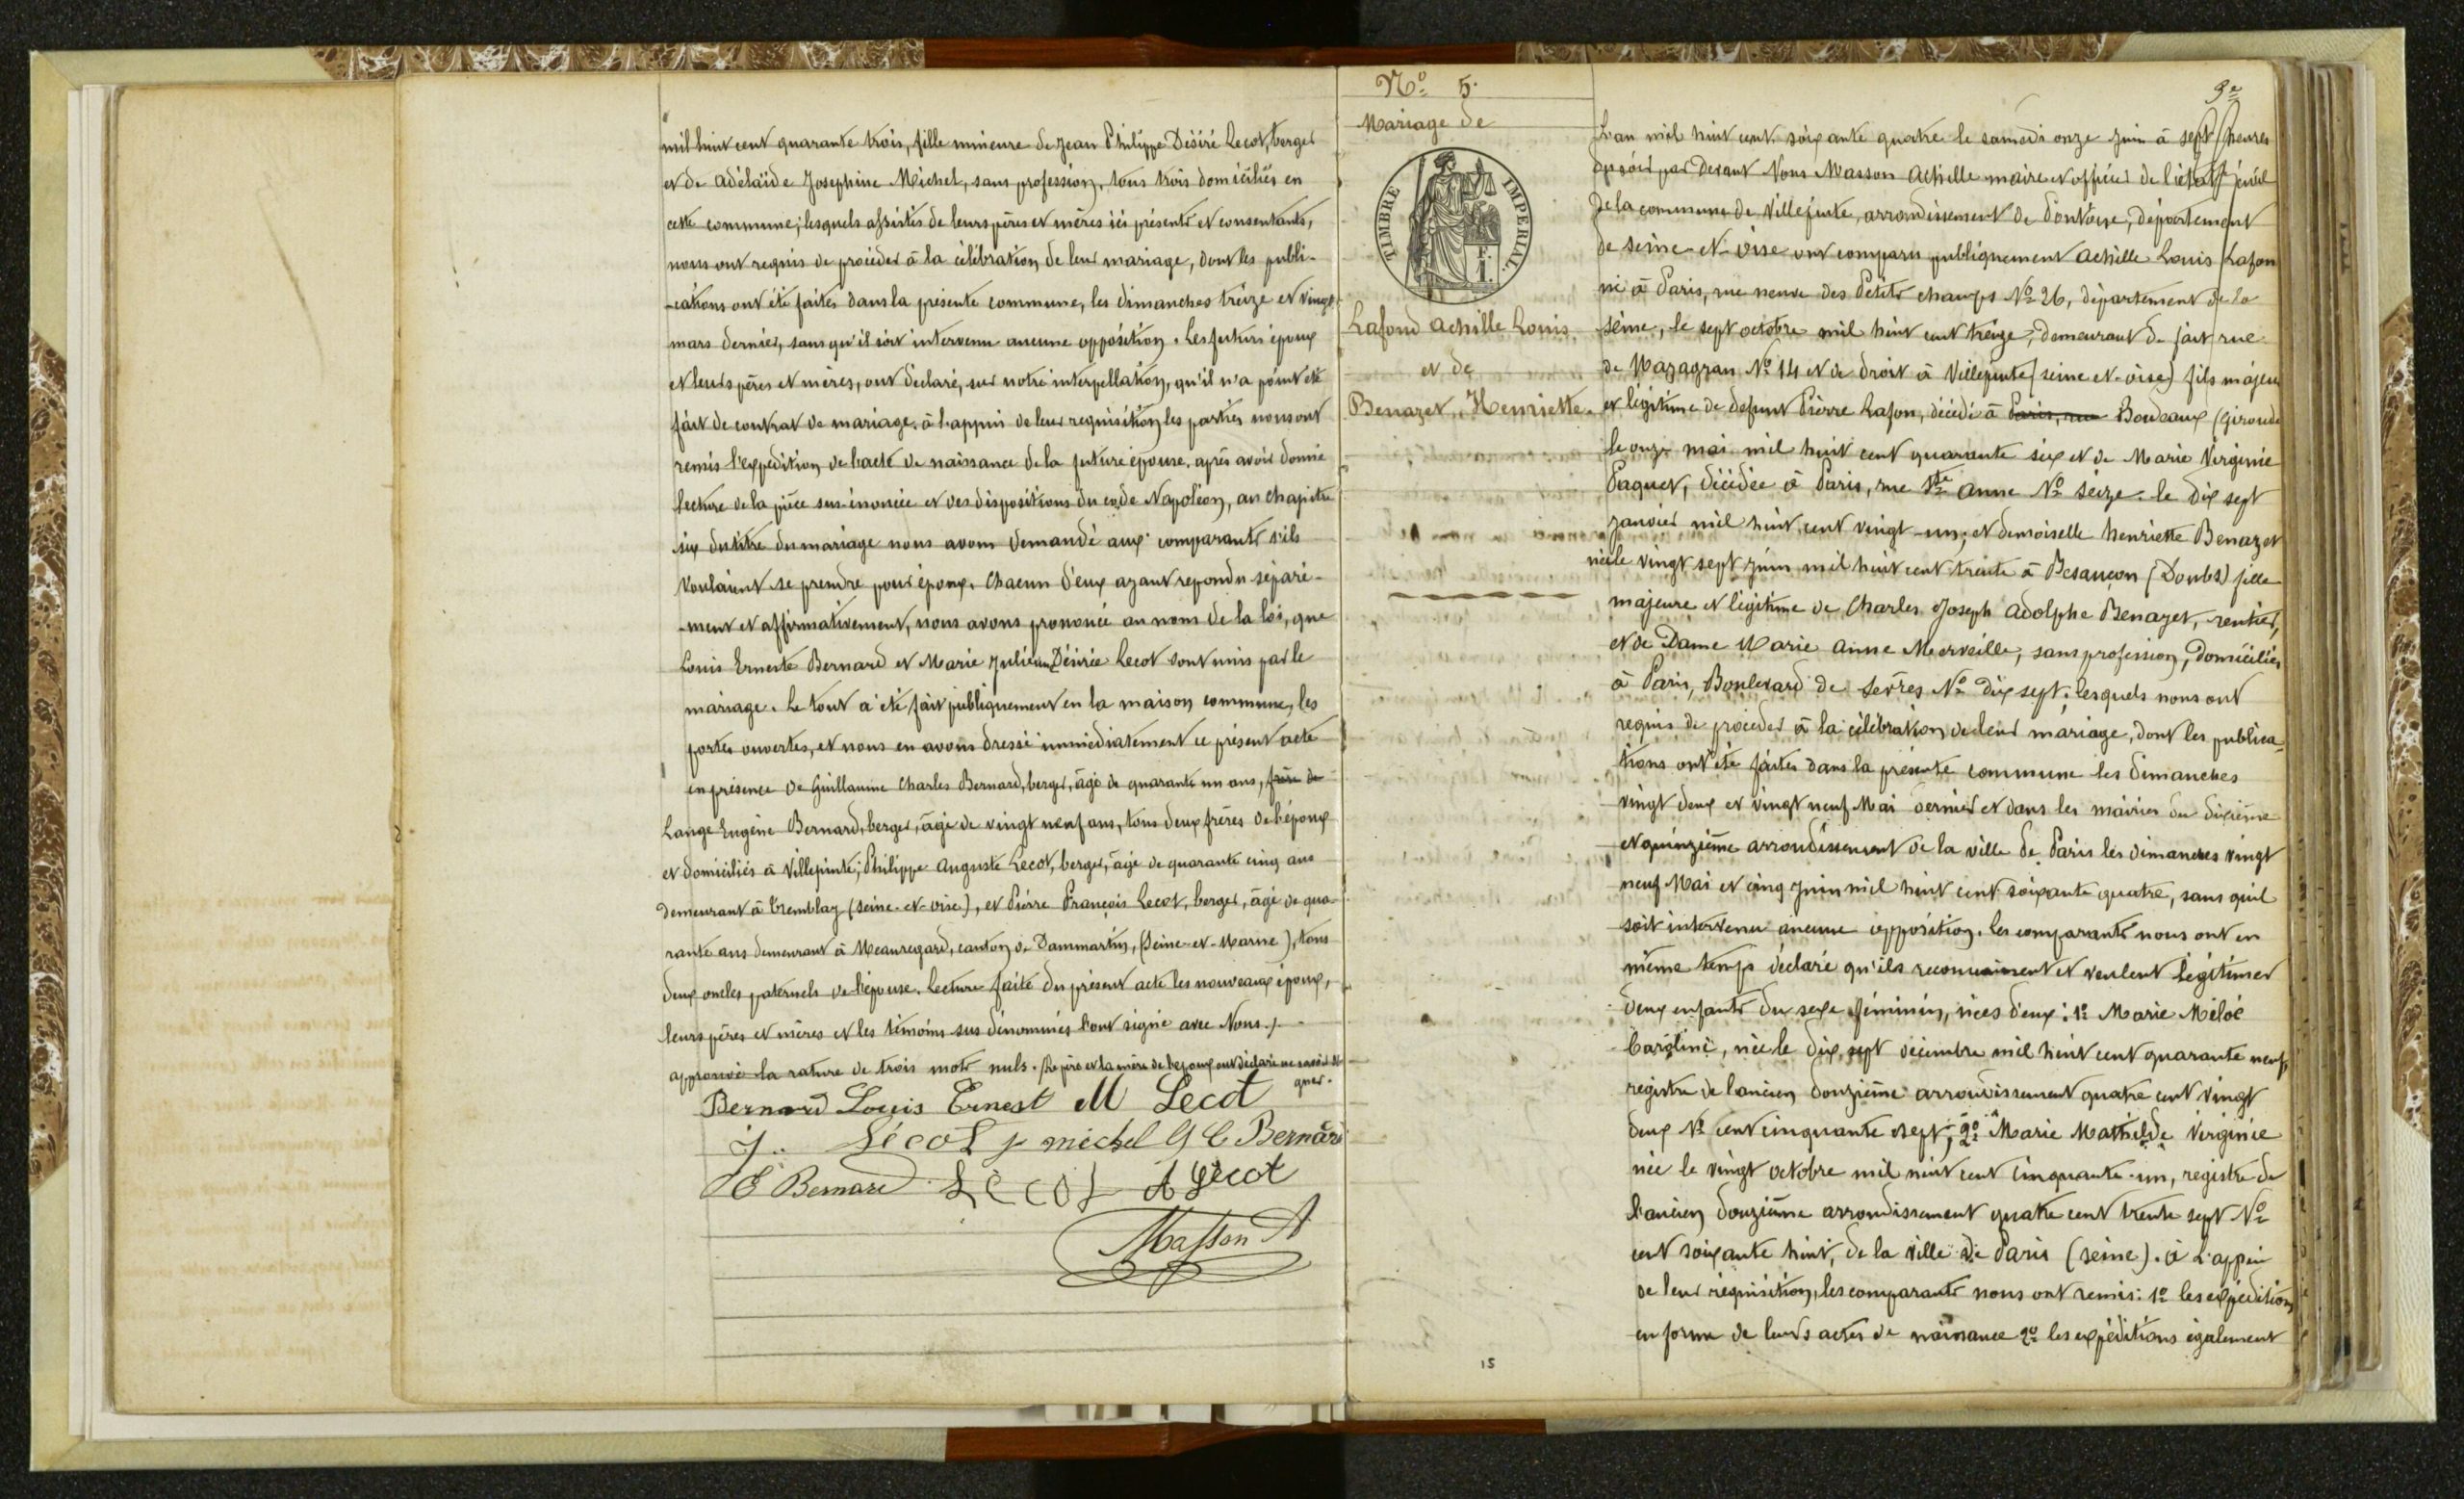 mil huit cent quarante trois, fille mineure de Jean Philippe Désiré Lecot, berger
et de Adélaïde Josephine Michel, sans profession, tous trois domiciliés en
cette commune; lesquels assistés de leurs pères et mères ici présents et consentants,
nous ont requis de procéder à la célébration de leur mariage, dont les publi-
-cations ont été faites dans la présente commune, les dimanches treize et vingt
mars dernier, sans qu'il soit intervenu aucune opposition. Les futurs époux
et leurs pères et mères, ont déclaré, sur notre interpellation, qu'il n'a point été
fait de contrat de mariage. à l'appui de leur requisition les parties nous ont
remis l'expédition de l'acte de naissance de la future épouse. après avoir donné
lecture de la pièce sus-énoncée et des dispositions du code Napoléon, au chapitre
six du titre du mariage nous avons demandé aux comparants s'ils
voulaient se prendre pour époux. Chacun d'eux ayant repondu séparé-
-ment et affirmativement, nous avons prononcé au nom de la loi, que
Louis Erneste Bernard et Marie Julienne Désirée Lecot sont unis par le
mariage. Le tout a été fait publiquement en la maison commune, les
portes ouvertes, et nous en avons dressé immédiatement le présent acte
en présence de Guillaume Charles Bernard, berger, âgé de quarante un ans, frère de
Lange Eugène Bernard, berger, âgé de vingt neuf ans, tous deux frères de l'époux
et domiciliés à Villepinte; Philippe Auguste Lecot, berger, âgé de quarante cinq ans
demeurant à Tremblay (Seine-et-oise), et Pierre François Lecot, berger, âgé de qua-
rante ans demeurant à Meauregard, canton de Dammartin, (Seine-et-Marne), tous
deux oncles paternels de l'épouse. Lecture faite du présent acte les nouveaux époux,
leurs pères et mères et les témoins sus dénommés l'ont signé avec Nous./.
approuvé la rature de trois mots nuls. Le père et la mère de l'époux ont déclaré ne savoir si
gner.
Bernard Louis Ernest M Lecot
J. Lécot j michel G C Bernard
E Bernard Lécot A Lécot
Masson A
No 5.
Mariage de
TIMBRE IMPERIAL
Lafond Achille Louis
et de
Benazet Henriette.
15
L'an mil huit cent soixante quatre le samedi onze juin à sept heures
du soir, par devant Nous Masson Achille maire et officier de l'état civil
de la commune de Villepinte, arrondissement de Pontoise, département
de Seine-et-oise ont comparu publiquement Achille Louis Lafon
né à Paris, rue neuve des Petits champs No 26, département de la
seine, le sept octobre mil huit cent treize, demeurant de fait rue
de Mazagran No 14 et de droit à Villepinte (seine et-oise) fils majeur
et légitime de defunt Pierre Lafon, décédé à Paris, rue Bordeaux (Gironde
le onze mai mil huit cent quarante six et de Marie Virginie
Paquet, décédée à Paris, rue Ste anne No seize. le dix sept
janvier mil huit cent vingt-un; et demoiselle henriette Benazet
née le vingt sept juin mil huit cent trente à Besançon (Doubs) fille
majeure et légitime de Charles Joseph Adolphe Benazet, rentier,
et de Dame Marie Anne Merveille, sans profession, domiciliés
à Paris, Boulevard de Sevres No dix sept. lesquels nous ont
requis de procéder à la célébration de leur mariage, dont les publica-
tions ont été faites dans la présente commune les dimanches
vingt deux et vingt neuf Mai dernier et dans les mairies du dixième
et quinzième arrondissement de la ville de Paris les dimanches vingt
neuf Mai et cinq juin mil huit cent soixante quatre, sans qu'il
soit intervenu aucune opposition. les comparants nous ont en
même temps déclaré qu'ils reconnaissent et veulent légitimer
deux enfants du sexe féminin, nées d'eux: 1o Marie Méloé
Caroline, née le dix sept décembre mil huit cent quarante neuf,
registre de l'ancien douzième arrondissement quatre cent vingt
deux No cent cinquante sept; 2o Marie Mathilde Virginie
née le vingt octobre mil huit cent cinquante-un, registre de
l'ancien douzième arrondissement quatre cent trente sept No
cent soixante huit, de la ville de Paris (seine). à l'appui
de leur réquisition, les comparants nous ont remis: 1o les expéditions
en forme de leurs actes de naissance 2o les expéditions également